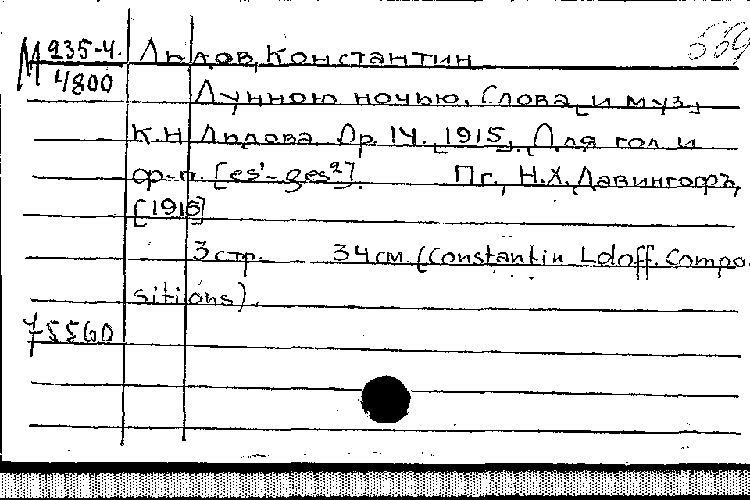 М 235-4. Льдов, Константин 559
4800
Лунною ночью. Слова [и муз.]
К.Н. Льдова. Ор. 14. [1915]. Для гол. и
ф-п. [es¹-ges²]. Пг., Н.Х. Давингофъ,
[1915]
3 стр. 34 см. (Constantin Ldoff. Compo-
sitions).
75560